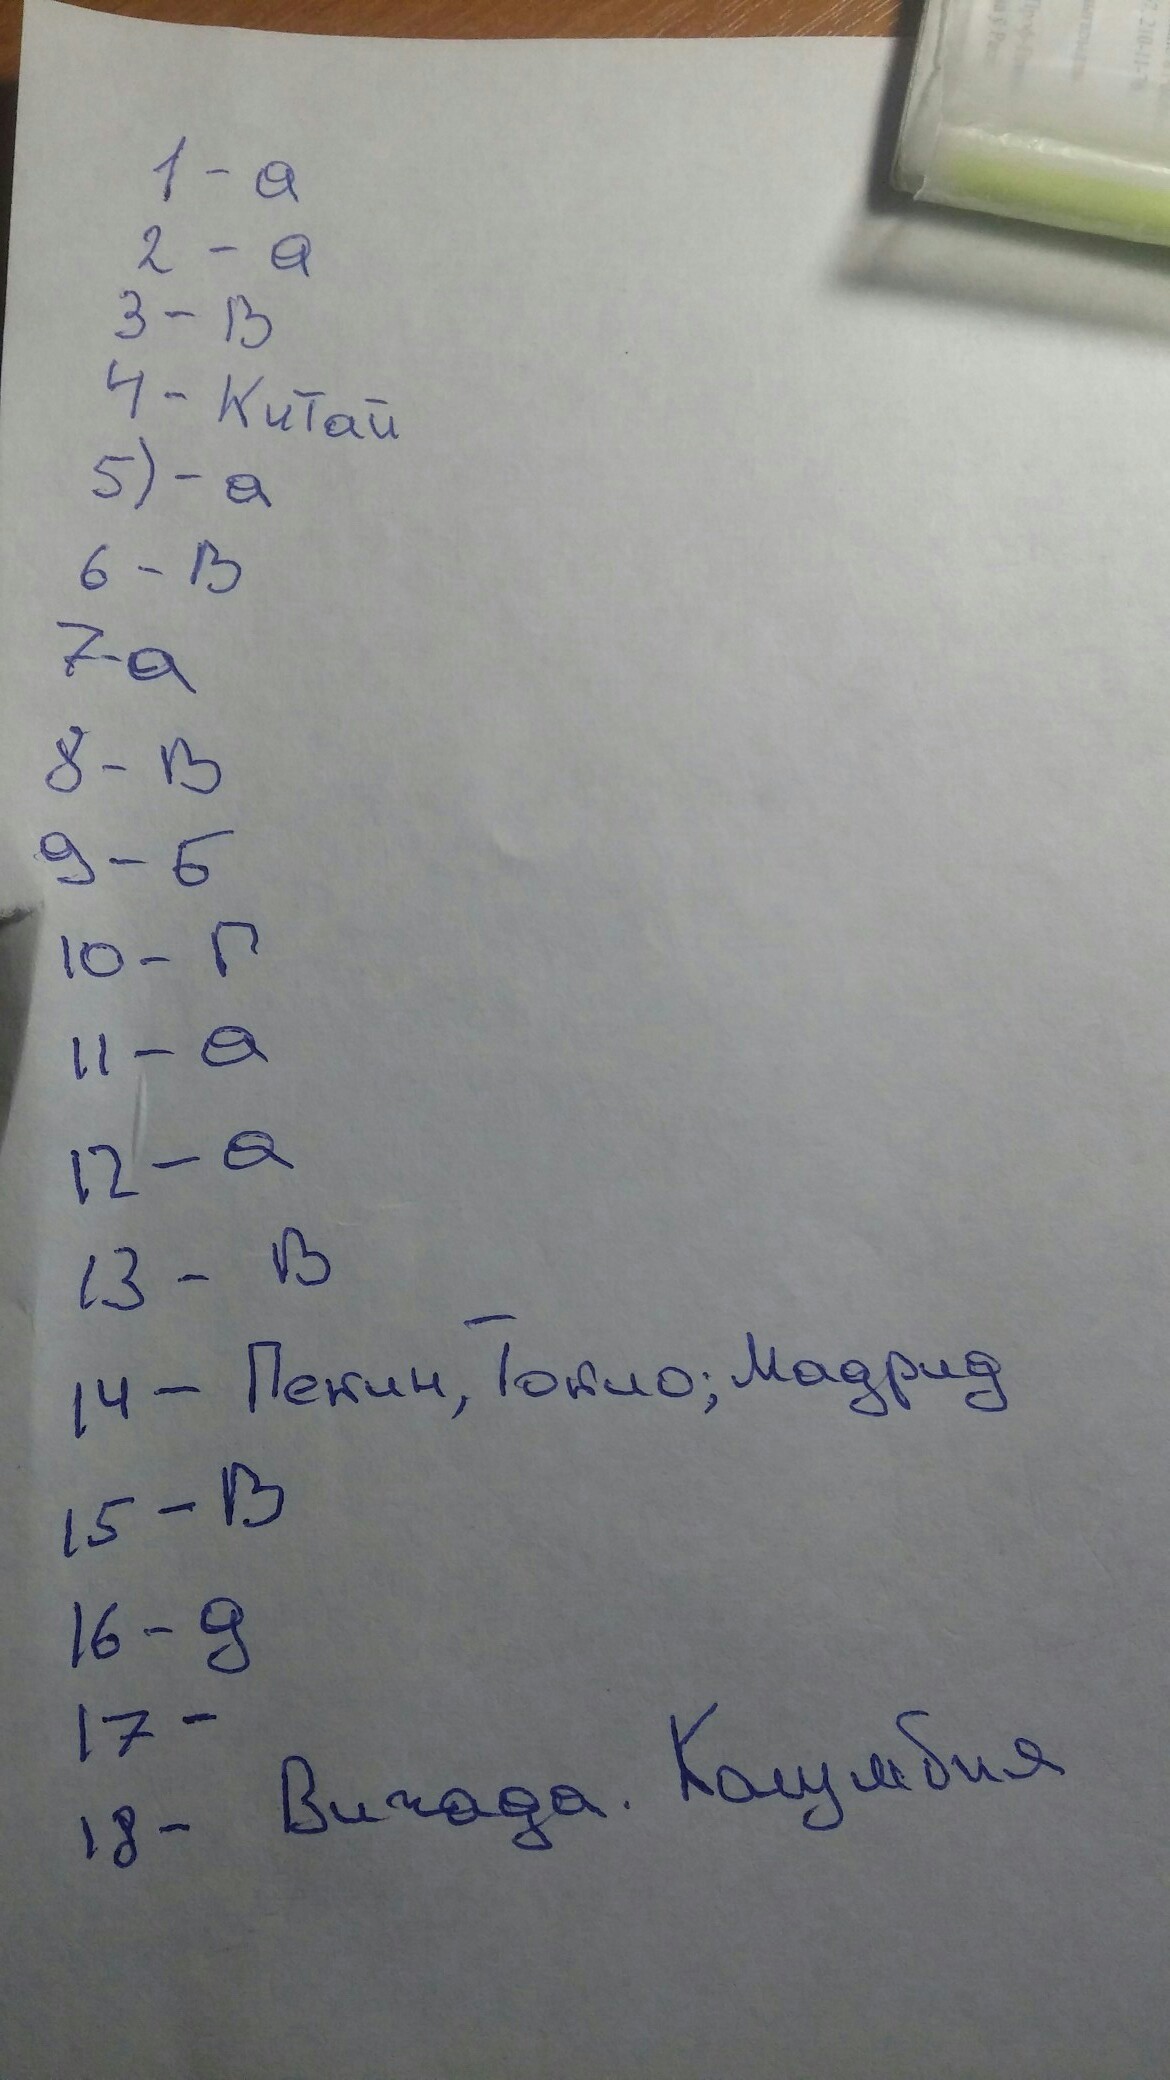 1 - а
2 - а
3 - В
4 - Китай
5) - а
6 - В
7-а
8 - В
9 - Б
10 - Г
11 - а
12 - а
13 - В
14 - Пекин, Токио; Мадрид
15 - В
16 - д
17 -
18 - Вичада. Колумбия